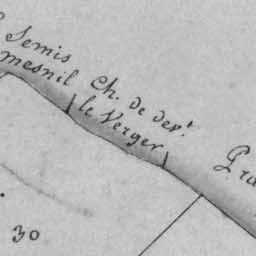 Semis
mesnil
Ch. de dépt.
le Verger
Gra
30